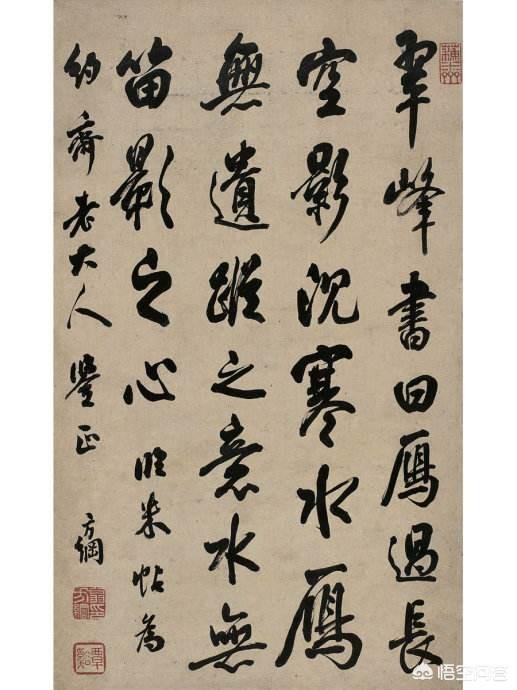 翠峰書曰鴈過長
空影沈寒水鴈
無遺蹤之意水無
留影之心 臨米帖為
約齋老大人鑒正 方綱
悟空问答